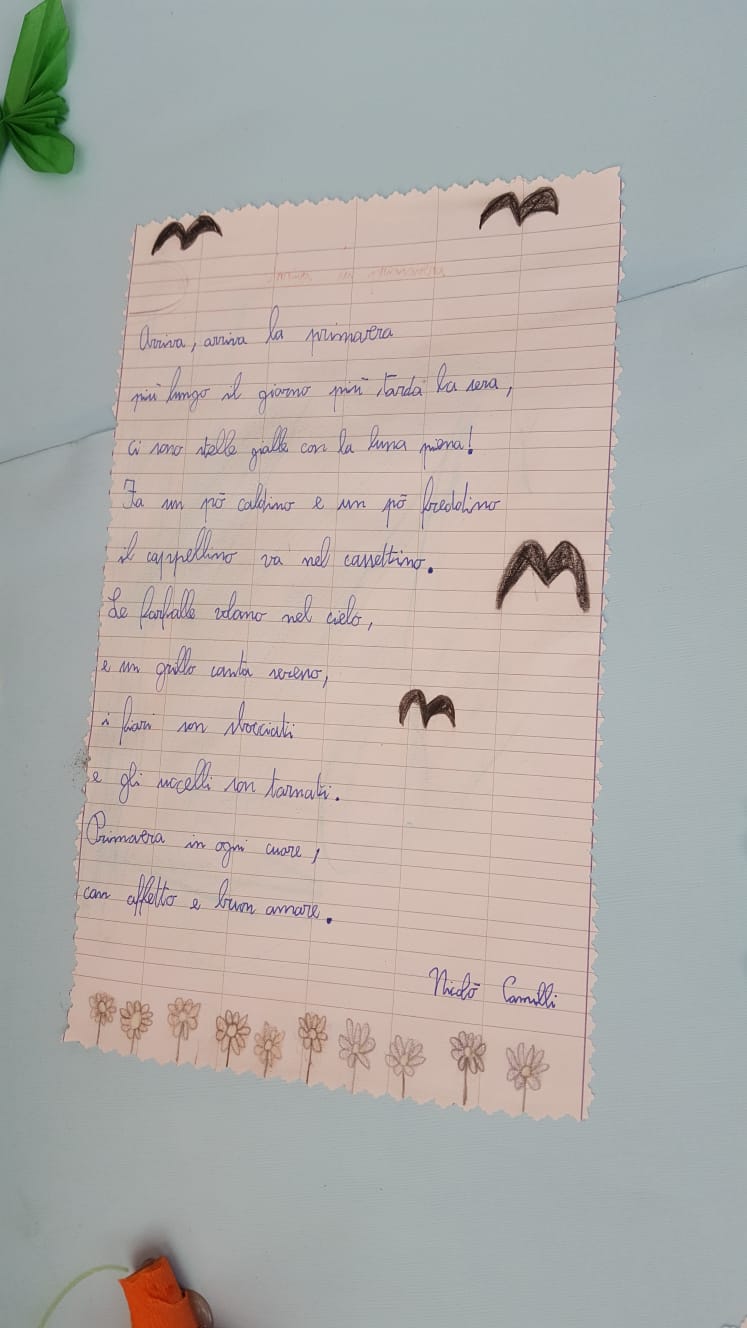 in primavera
Arriva, arriva la primavera
più lungo il giorno più tarda la sera,
ci sono stelle gialle con la luna piena!
Fa un pō caldino e un pō freddino
il cappellino va nel cassettino.
Le farfalle volano nel cielo,
e un grillo canta sereno,
i fiori son sbocciati
e gli uccelli son tornati.
Primavera in ogni cuore,
con affetto e buon amore.
Nicolō Camilli